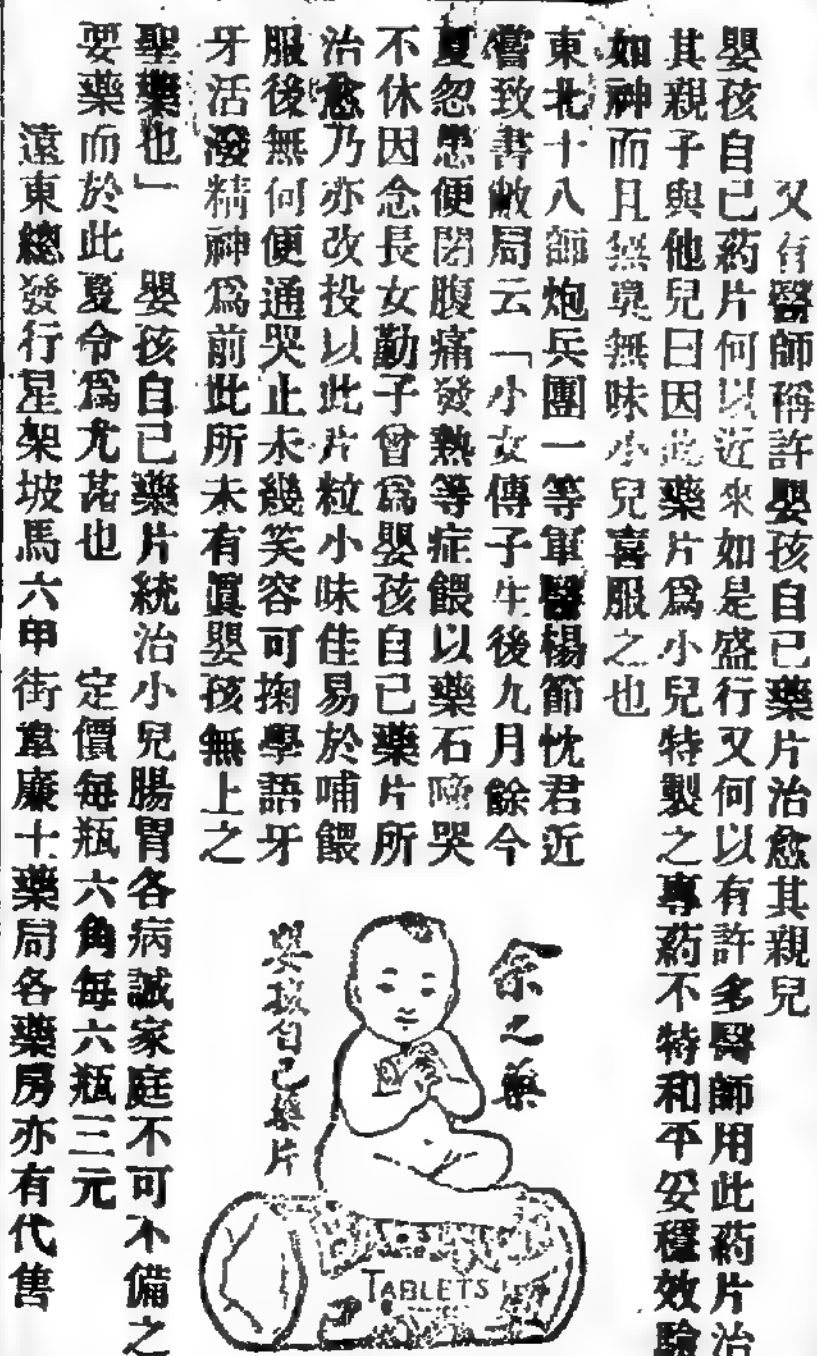 又有醫師稱許嬰孩自己藥片治愈其親兒
嬰孩自己葯片何以近來如是盛行又何以有許多醫師用此葯片治
其親子與他兒曰因此藥片爲小兒特製之專葯不特和平妥穩效驗
如神而且無臭無味小兒喜服之也
東北十八師炮兵團一等軍醫楊節忱君近
嘗致書敝局云「小女傳子生後九月餘今
夏忽患便閉腹痛發熱等症餵以藥石啼哭
不休因念長女勤子曾爲嬰孩自己藥片所
治愈乃亦改投以此片粒小味佳易於哺餵
服後無何便通哭止未幾笑容可掬學語牙
牙活潑精神爲前此所未有眞嬰孩無上之
聖藥也」　嬰孩自己藥片統治小兒腸胃各病誠家庭不可不備之
要藥而於此夏令爲尤甚也　定價每瓶六角每六瓶三元
遠東總發行星架坡馬六甲街韋廉士藥局各藥房亦有代售
余之藥
嬰孩自己藥片
TABLETS